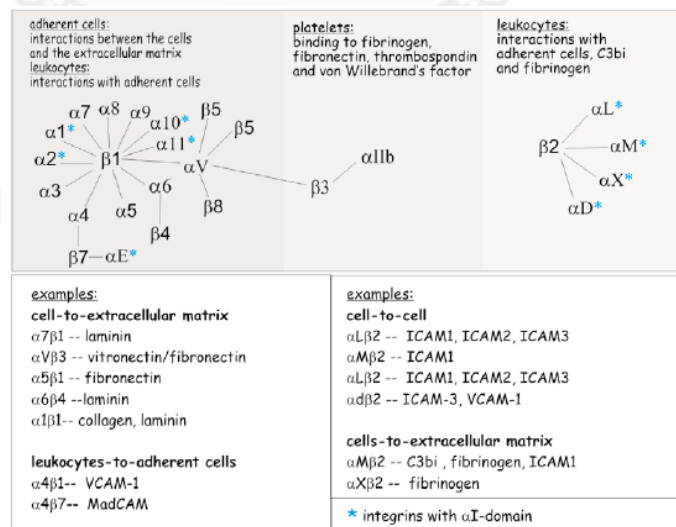 adherent cells:
interactions between the cells
and the extracellular matrix
leukocytes:
interactions with adherent cells
platelets:
binding to fibrinogen,
fibronectin, thrombospondin
and von Willebrand's factor
leukocytes:
interactions with
adherent cells, C3bi
and fibrinogen
α7 α8 α9 β5
α1* α10* β5
α2* β1 α11* αV
α3 α6
α4 α5 β8
β4
β7 αE*
αIIb
β3
αL*
β2 αM*
αX*
αD*
examples:
cell-to-extracellular matrix
α7β1 -- laminin
αVβ3 -- vitronectin/fibronectin
α5β1 -- fibronectin
α6β4 --laminin
α1β1-- collagen, laminin
leukocytes-to-adherent cells
α4β1-- VCAM-1
α4β7-- MadCAM
examples:
cell-to-cell
αLβ2 -- ICAM1, ICAM2, ICAM3
αMβ2 -- ICAM1
αLβ2 -- ICAM1, ICAM2, ICAM3
αdβ2 -- ICAM-3, VCAM-1
cells-to-extracellular matrix
αMβ2 -- C3bi , fibrinogen, ICAM1
αXβ2 -- fibrinogen
* integrins with αI-domain